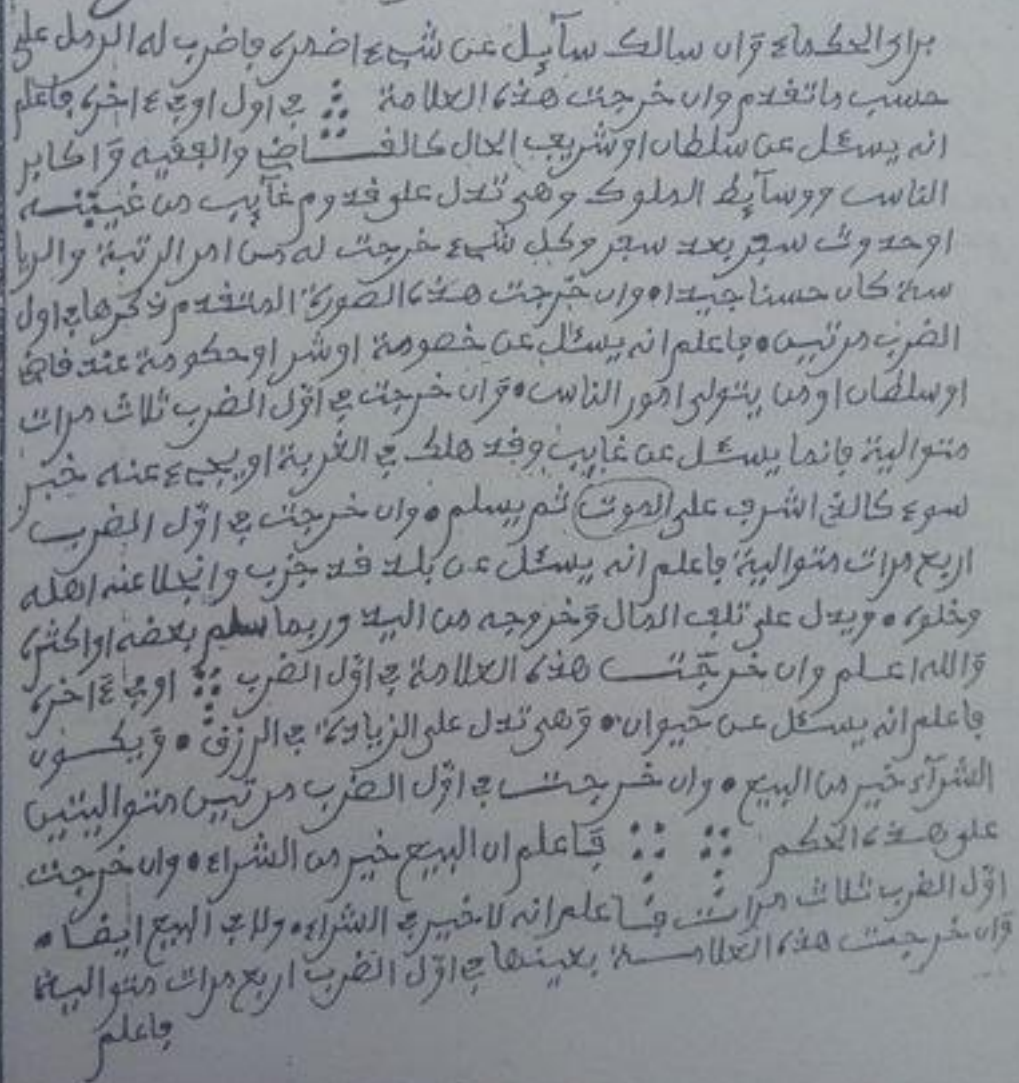 براي الحكماء وان سالك سآيل عن شيء اضمره فاضرب له الرمل على
حسب ما تقدم وان خرجت هذه العلامة في اول او في ءاخره فاعلم
انه يسئل عن سلطان او شريف الحال كالقاضي والفقيه واكابر
الناس ووسآيط الملوك وهي تدل على قدوم غآيب من غيبته
او حدوث سفر بعد سفر وكل شيء خرجت له من امر الرتبة والريا
سة كان حسنا جيدا ه وان خرجت هذه الصورة المتقدم ذكرها في اول
الضرب مرتين ه فاعلم انه يسئل عن خصومة او شر او حكومة عند قاض
او سلطان او من يتولى امور الناس ه وان خرجت في اوّل الضرب ثلاث مرات
متوالية فانما يسئل عن غايب وقد هلك في الغربة او يجيء عنه خبر
سوء كالذي اشرف على الموت ثم يسلم ه وان خرجت في اوّل الضرب
اربع مرات متوالية فاعلم انه يسئل عن بلد قد خرب وانجلا عنه اهله
وخلوه ه ويدل على تلف المال وخروجه من اليد وربما سلم بعضه او اكثره
والله اعلم وان خرجت هذه العلامة في اوّل الضرب او في ءاخره
فاعلم انه يسئل عن حيوان ه وهي تدل على الزيادة في الرزق ه ويكون
الشرآء خير من البيع ه وان خرجت في اوّل الضرب مرتين متواليتين
على هذه الحكم فاعلم ان البيع خير من الشراء ه وان خرجت
اوّل الضرب ثلاث مرات فاعلم انه لا خير في الشراء ه ولا في البيع ايضا ه
وان خرجت هذه العلامة بعينها في اوّل الضرب اربع مرات متوالية
فاعلم